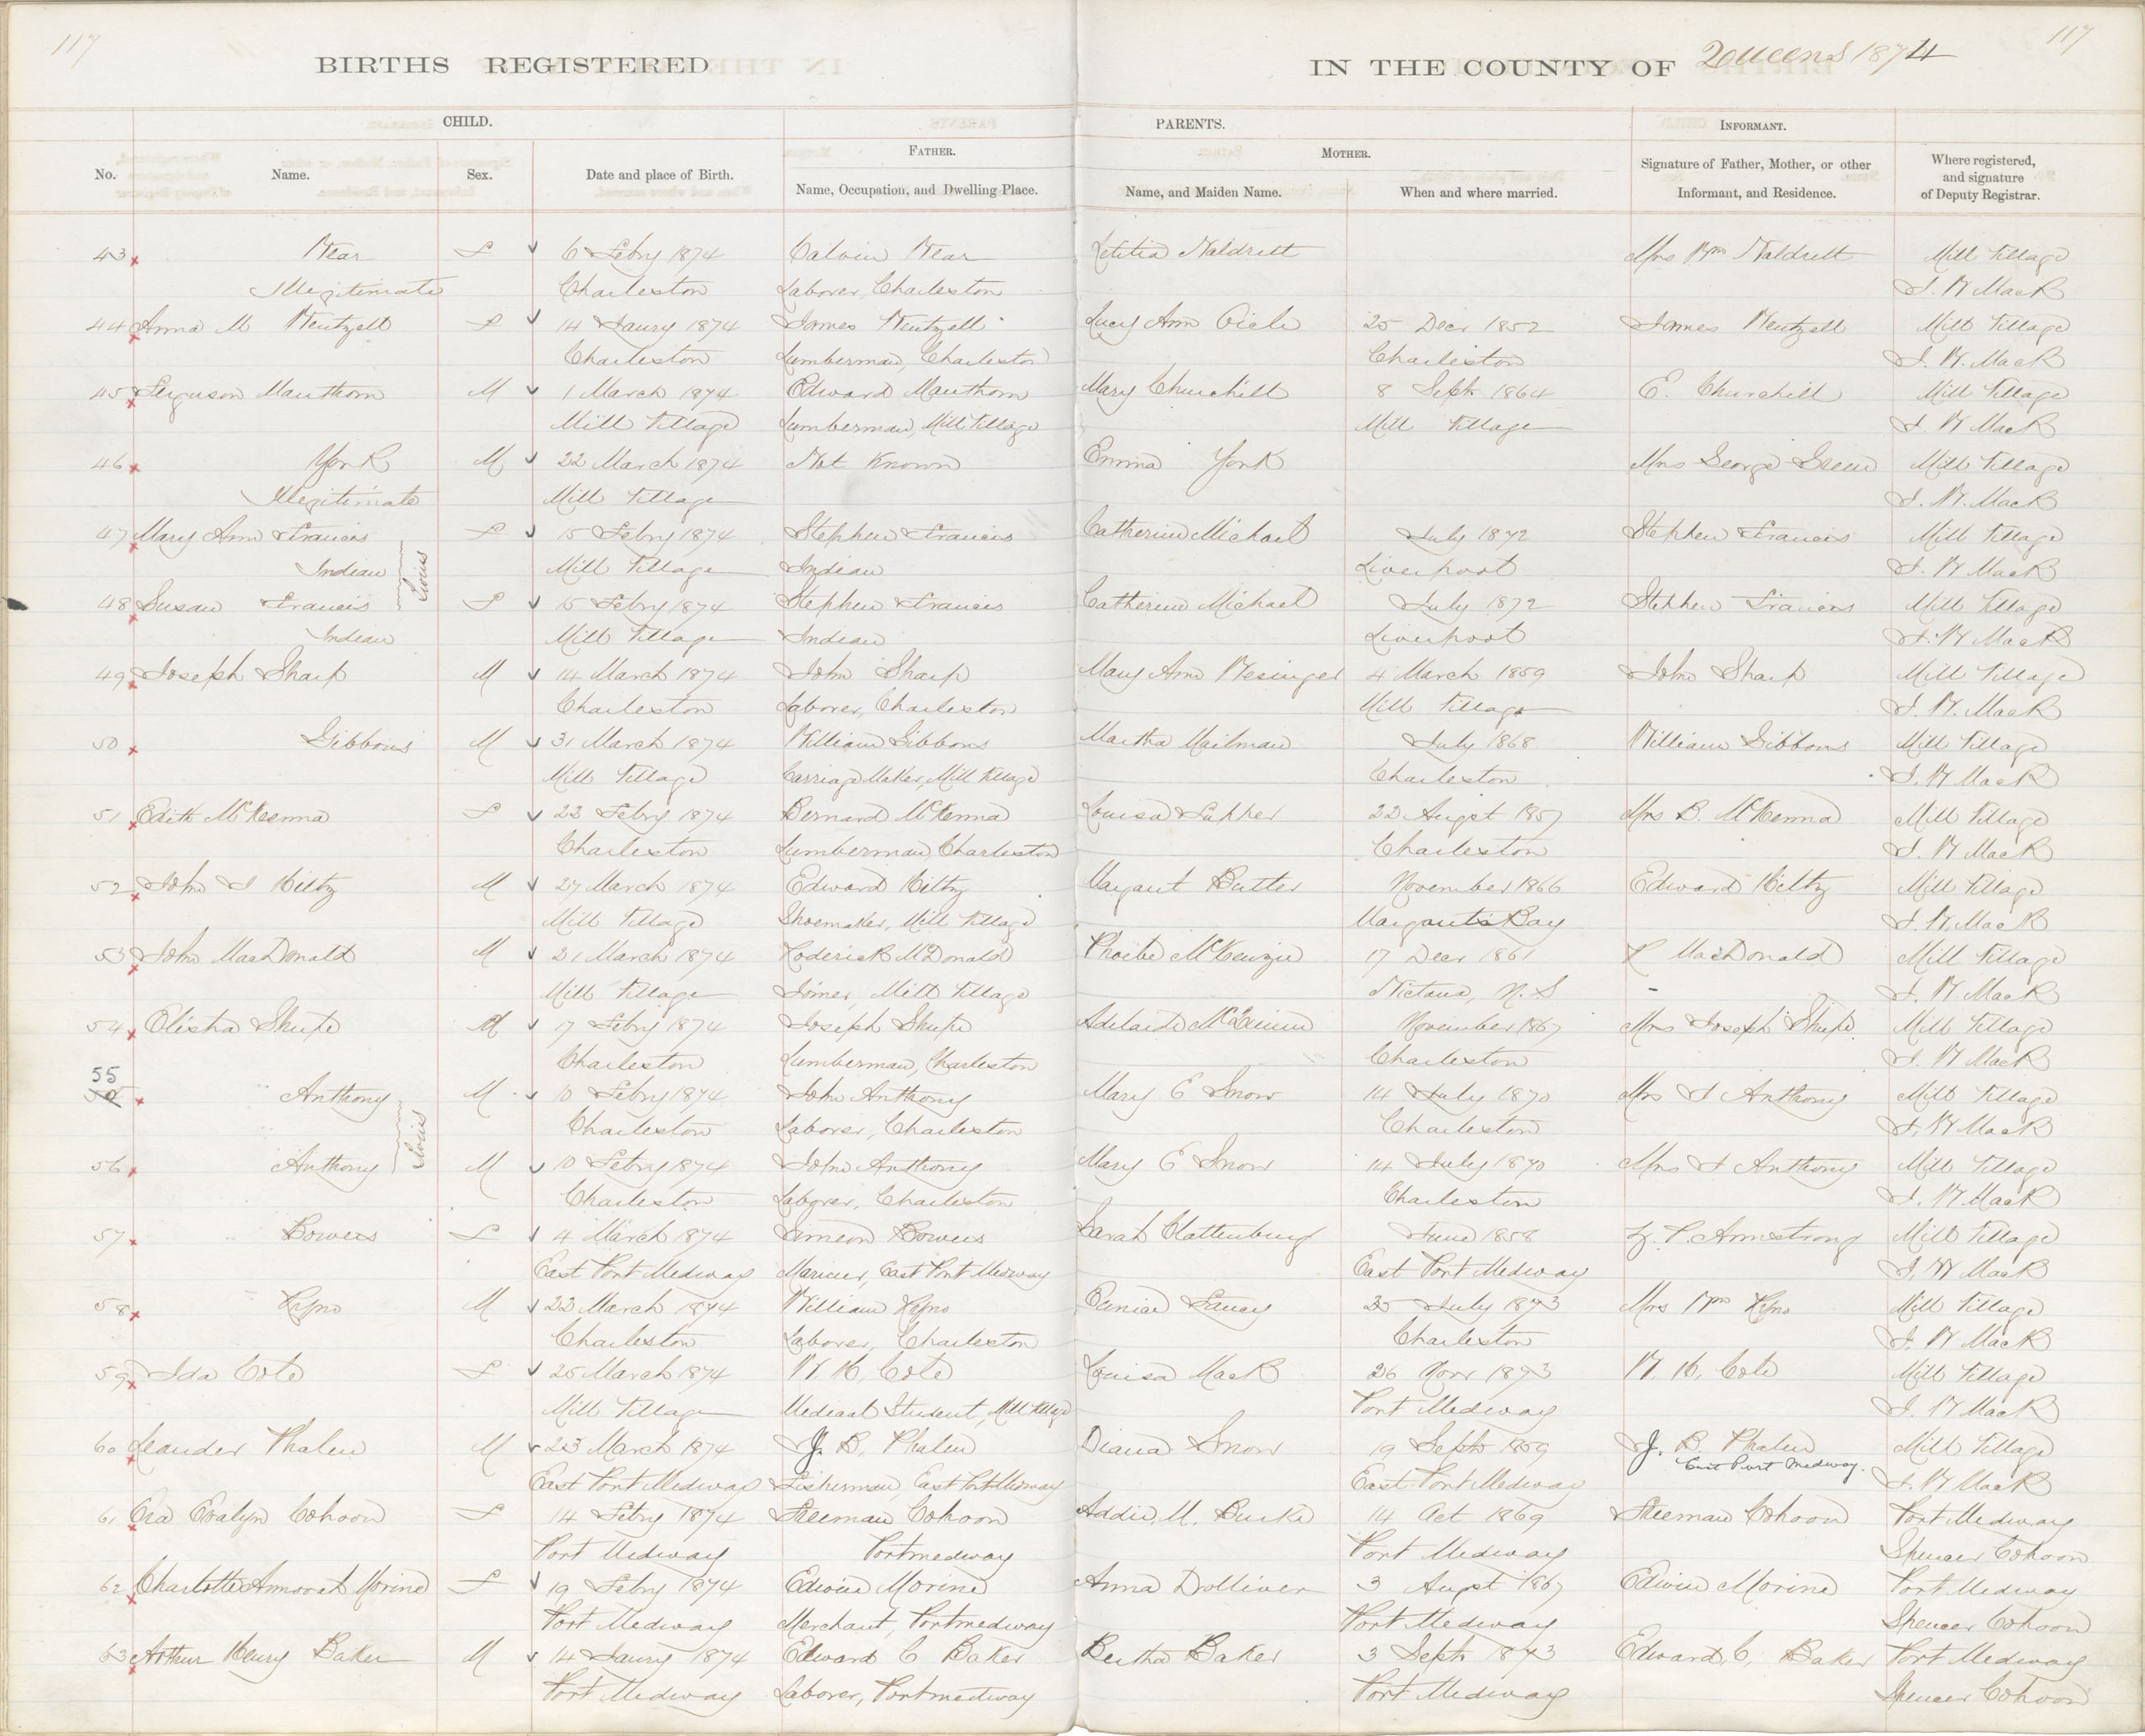 117
117
BIRTHS REGISTERED
IN THE COUNTY OF Queens 1874
CHILD.
PARENTS.
INFORMANT.
FATHER.
MOTHER.
No.
Name.
Sex.
Date and place of Birth.
Name, Occupation, and Dwelling Place.
Name, and Maiden Name.
When and where married.
Signature of Father, Mother, or other
Informant, and Residence.
Where registered,
and signature
of Deputy Registrar.
43 Wear F 6 Febry 1874 Calvin Wear Letitia Naldrett Mrs Wm Naldrett Mill Village
Illegitimate Charleston Laborer, Charleston Mack
44 Anna M Wentzell F 14 Jaury 1874 James Wentzell Lucy Ann 25 Decr 1852 James Wentzell Mill Village
Charleston Lumberman, Charleston Charleston Mack
45 Ferguson Manthorn M 1 March 1874 Edward Manthorn Mary Churchill 8 Sept 1864 E. Churchill Mill Village
Mill Village Lumberman, Mill Village Mill Village Mack
46 York M 22 March 1874 Not Known Emma York Mrs George Mill Village
Illegitimate Mill Village Mack
47 Mary Ann Francis F 15 Febry 1874 Stephen Francis Catherine Michael July 1872 Stephen Francis Mill Village
Indian Mill Village Indian Liverpool Mack
48 Susan Francis F 15 Febry 1874 Stephen Francis Catherine Michael July 1872 Stephen Francis Mill Village
Indian Mill Village Indian Liverpool Mack
49 Joseph Sharp M 14 March 1874 John Sharp Mary Ann Wesinger 4 March 1859 John Sharp Mill Village
Charleston Laborer, Charleston Mill Village Mack
50 Gibbons M 31 March 1874 William Gibbons Martha Mailman July 1868 William Gibbons Mill Village
Mill Village Carriage Maker, Mill Village Charleston Mack
51 Edith McKenna F 23 Febry 1874 Bernard McKenna Louisa 22 Augst 1857 Mrs B. McKenna Mill Village
Charleston Lumberman, Charleston Charleston Mack
52 John Hiltz M 27 March 1874 Edward Hiltz Margaret Butler November 1866 Edward Hiltz Mill Village
Mill Village Shoemaker, Mill Village Margarets Bay Mack
53 John MacDonald M 21 March 1874 Roderick McDonald Phoebe McKenzie 17 Decr 1861 R MacDonald Mill Village
Mill Village Joiner, Mill Village Nictaux, N. S Mack
54 Elisha Shupe M 17 Febry 1874 Joseph Shupe Adelaide November 1867 Mrs Joseph Shupe Mill Village
Charleston Lumberman, Charleston Charleston Mack
55 Anthony M 10 Febry 1874 John Anthony Mary E Snow 14 July 1870 Mrs J Anthony Mill Village
Charleston Laborer, Charleston Charleston Mack
56 Anthony M 10 Febry 1874 John Anthony Mary E Snow 14 July 1870 Mrs J Anthony Mill Village
Charleston Laborer, Charleston Charleston Mack
57 Bowers F 4 March 1874 Simeon Bowers Sarah Clattenburg June 1858 Armstrong Mill Village
East Port Medway Mariner, East Port Medway East Port Medway Mack
58 M 22 March 1874 William 25 July 1873 Mrs Wm Mill Village
Charleston Laborer, Charleston Charleston Mack
59 Ida Cole F 25 March 1874 W. H. Cole Louisa Mack 26 Novr 1873 W. H. Cole Mill Village
Mill Village Medical Student, Mill Village Port Medway Mack
60 Leander Phalen M 23 March 1874 J. B. Phalen Diana Snow 19 Sept 1859 J. B. Phalen Mill Village
East Port Medway Fisherman, East Port Medway East Port Medway East Port Medway. Mack
61 Evalyn Cohoon F 14 Febry 1874 Freeman Cohoon Addie M. Burke 14 Oct 1869 Freeman Cohoon Port Medway
Port Medway Portmedway Port Medway Spencer Cohoon
62 Charlotte Morine F 19 Febry 1874 Edwin Morine Anna Dolliver 3 Augst 1867 Edwin Morine Port Medway
Port Medway Merchant, Portmedway Port Medway Spencer Cohoon
63 Arthur Henry Baker M 14 Jaury 1874 Edward C Baker Bertha Baker 3 Sept 1873 Edward C. Baker Port Medway
Port Medway Laborer, Portmedway Port Medway Spencer Cohoon